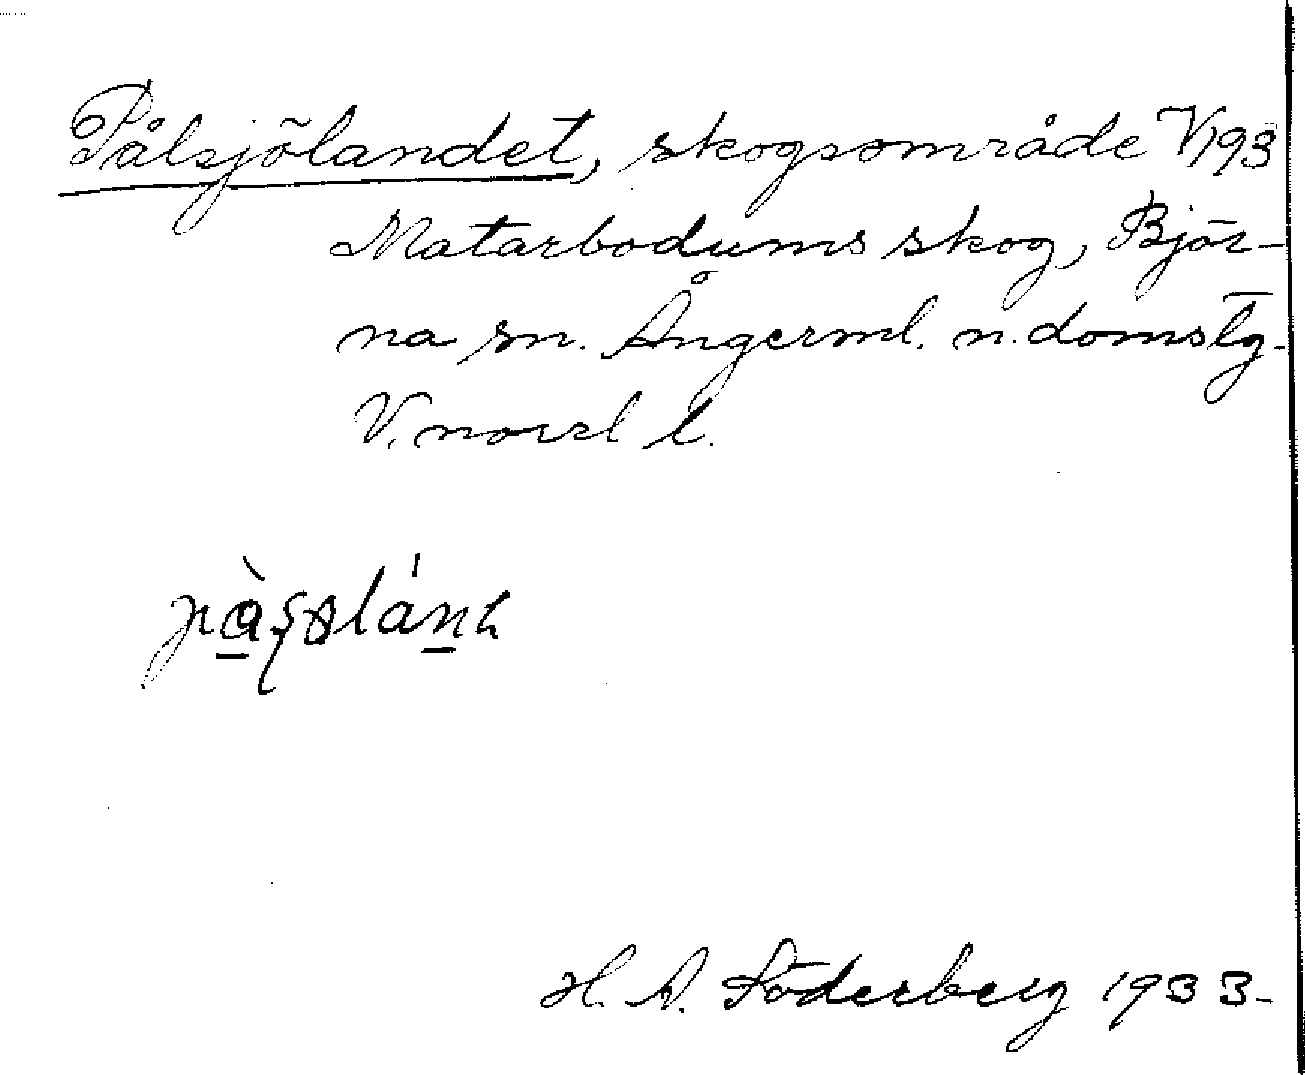 Pålsjölandet, skogsområde V193
Matarbodums skog, Björ-
na sn. Ångerml. n. domslg.
V. norrl l.
H. A. Söderberg 1933.